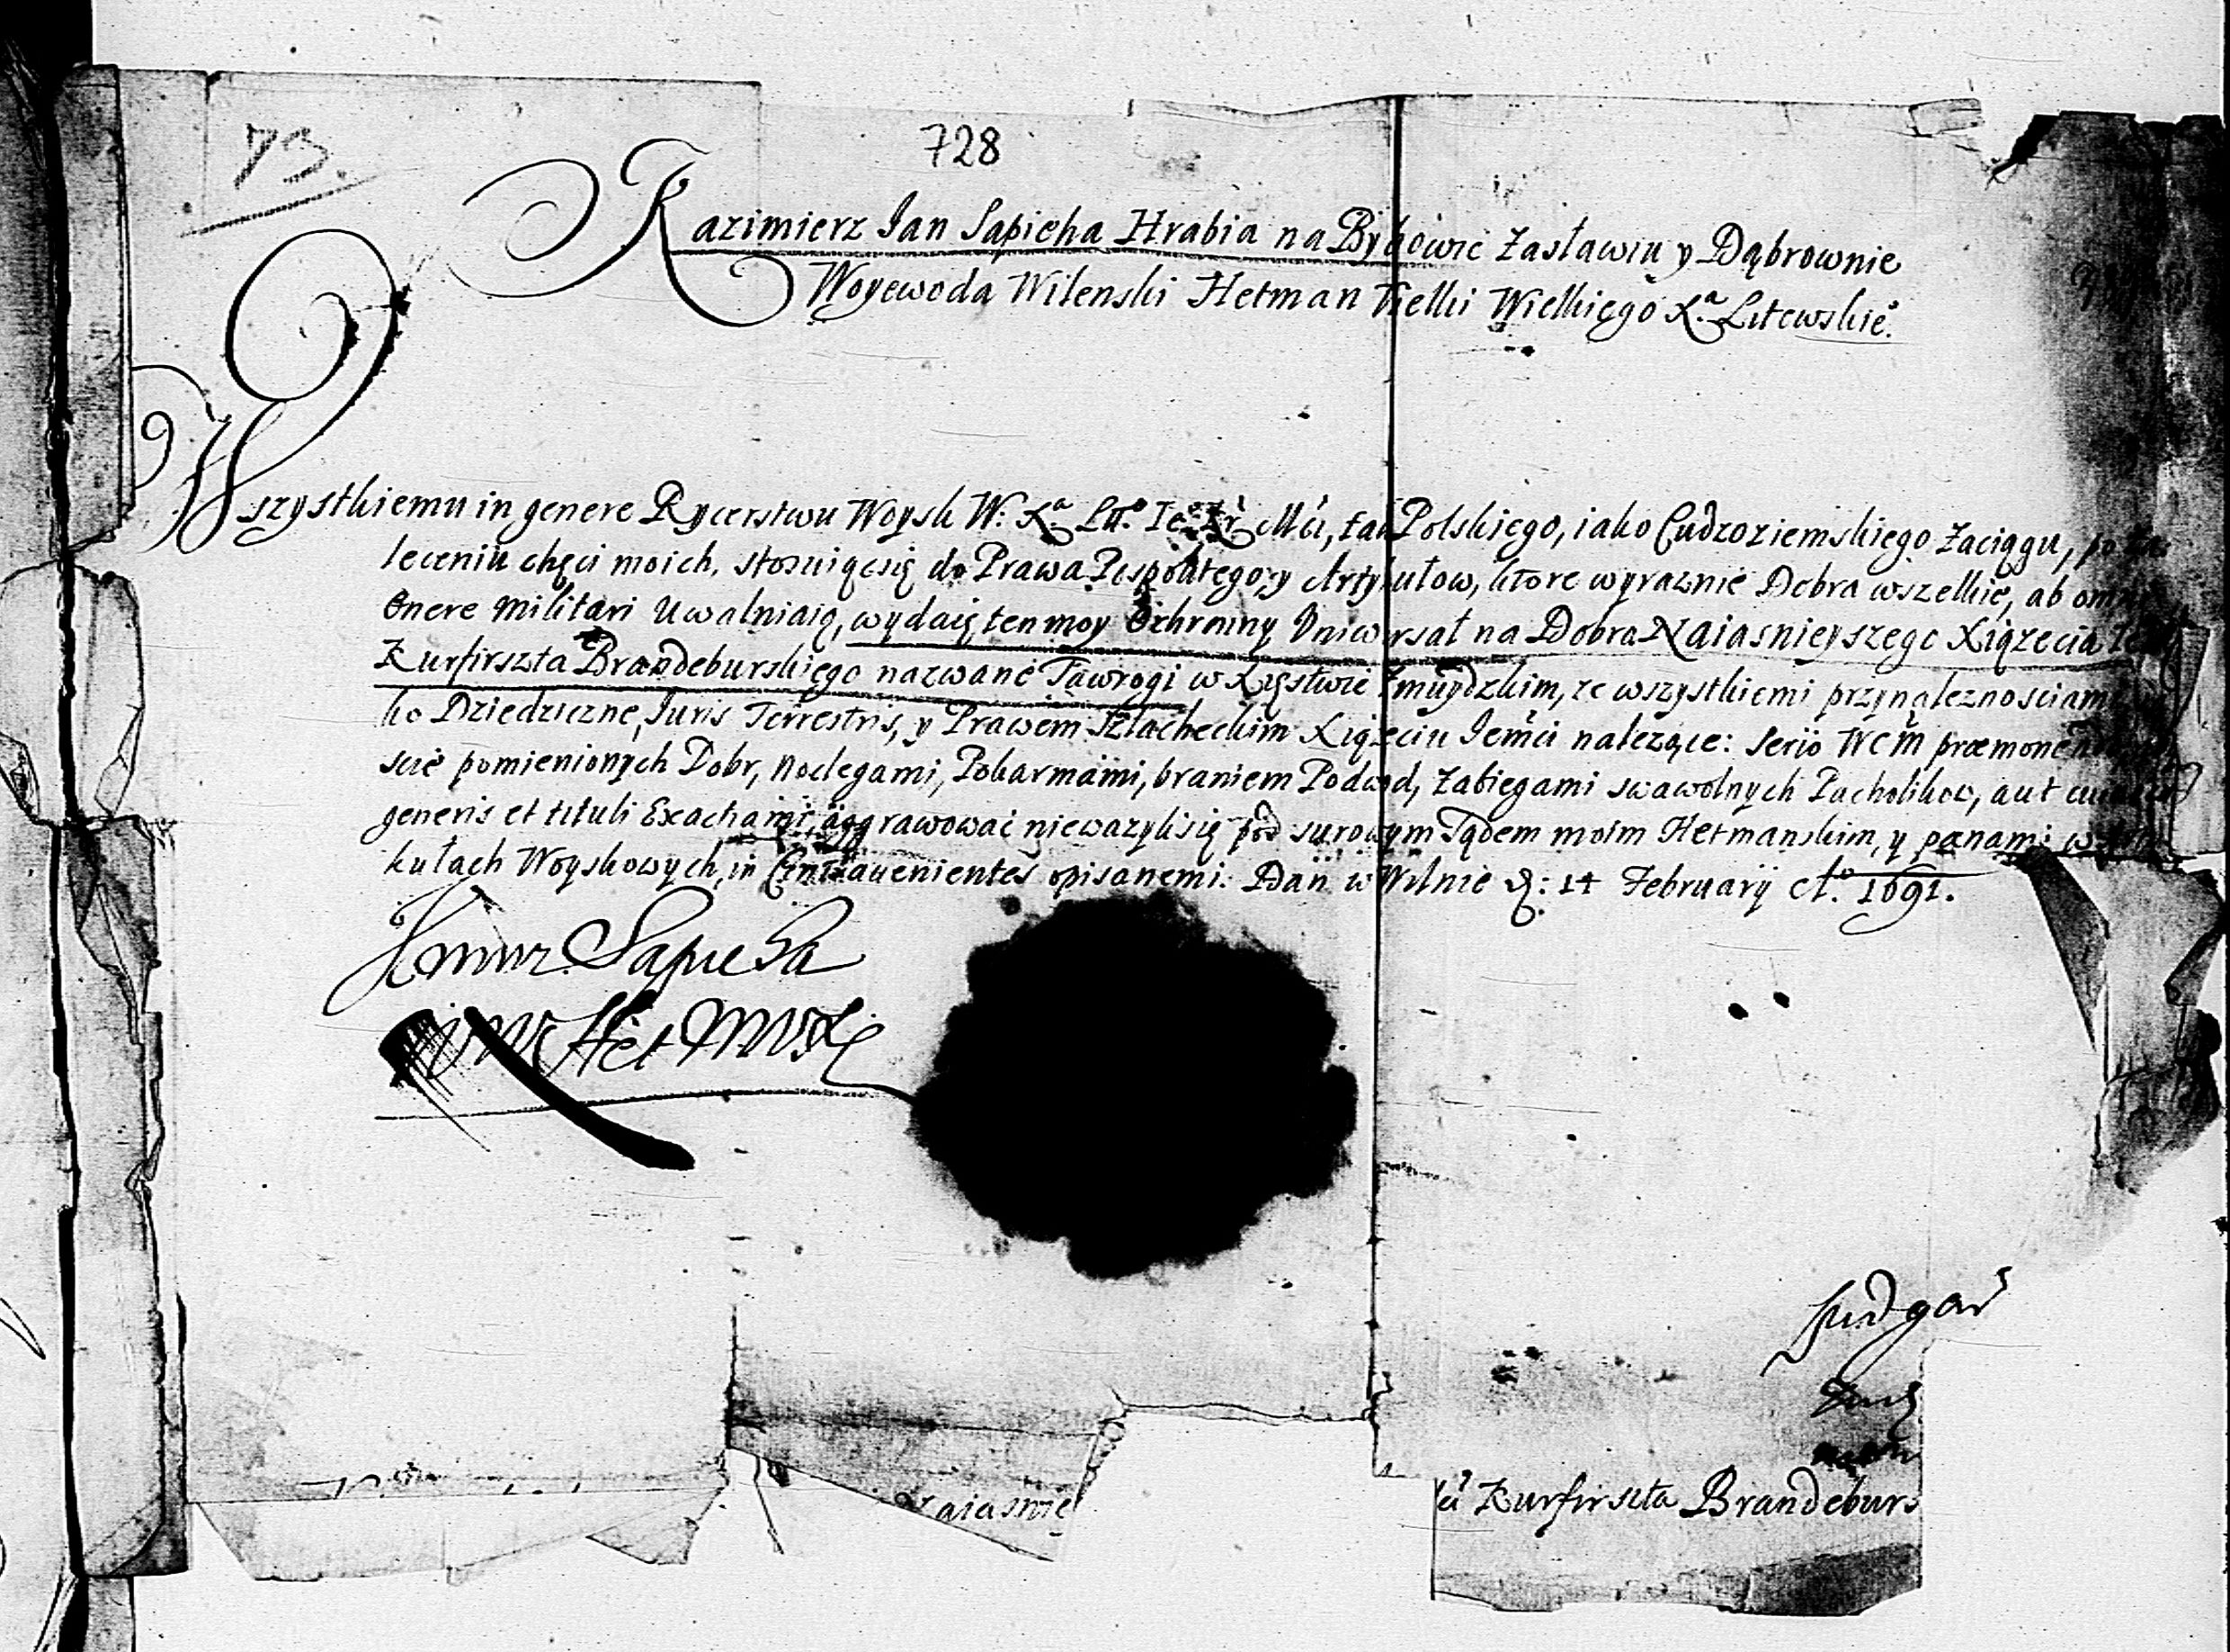 73.
728
Kazimierz Jan Sapieha Hrabia na Byhowie Zasławiu y Dąbrownie
Woyewoda Wilenski Hetman Wielki Wielkiego X.ª Litewskie.º
Wszystkiemu in genere Rycerstwu Woysk W: X.ª Litt.º Je.º Kr Mći, tak Polskiego, iako Cudzoziemskiego Zaciągu, po za
leceniu chęci moich, stosuiącsię do Prawa Pospolitego, y Artykułow, ktore wyraznie Dobra wszelkie, ab omni
Onere Militari Uwalniaią, wydaię ten moy Ochronny Uniwersał na Dobra Naiasnieyszego Xiązęcia
Kurfirszta Brandeburskiego nazwane Tawrogi w Xięstwie Zmuydzkim, ze wszystkiemi przynaleznosciami
ko Dziedziczne, Juris Terrestris, y Prawem Szlacheckim Xiązęciu Jemći nalezące: Serijo WCM præmone
scie pomienionych Dobr, Noclegami, Pokarmami, braniem Podwod, Zabiegami swawolnych Pacholikow, aut
generis et tituli Exactiami, aggrawować niewazylisię pod surowym Sądem moim Hetmanskim, y pænami w
kułach Woyskowych, in Contrauenientes opisanemi. Dan w Wilnie d: 14 February Aº. 1691.
Sapieha
Het
Naiasnie
ći Kurfirszta Brandeburs